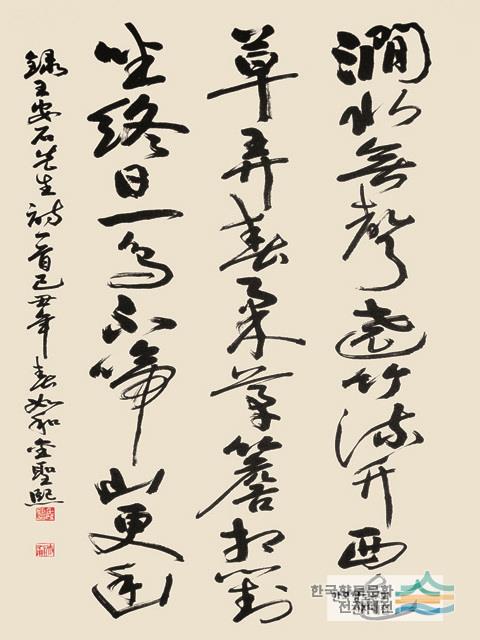 澗水無聲遶竹流竹西花
草弄春柔茅簷相對
坐終日一鳥不啼山更幽
錄王安石先生詩一首己丑年春如和堂聖熙
한국향토문화
전자대전